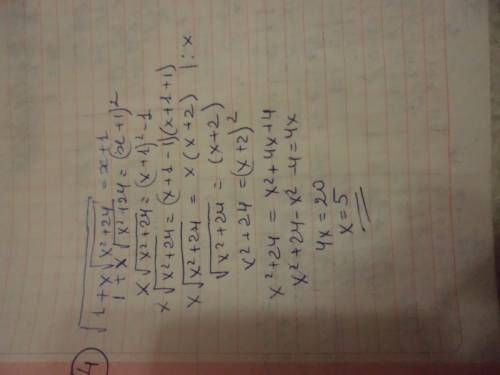 4
√(1+x√(x²+24)) = x+1
1+x√(x²+24) = (x+1)²
x√(x²+24) = (x+1)²-1
x√(x²+24) = (x+1-1)(x+1+1)
x√(x²+24) = x(x+2) |:x
√(x²+24) = (x+2)
x²+24 = (x+2)²
x²+24 = x²+4x+4
x²+24-x²-4=4x
4x=20
x=5